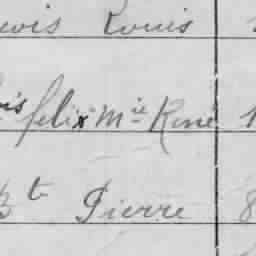 ois Louis
ois felix Mie René 1
Bte Pierre 8